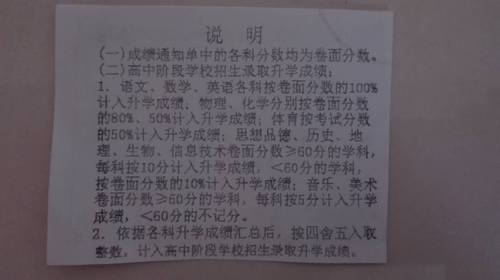 说 明
(一)成绩通知单中的各科分数均为卷面分数。
(二)高中阶段学校招生录取升学成绩:
1. 语文、数学、英语各科按卷面分数的100%
计入升学成绩; 物理、化学分别按卷面分数
的80%、50%计入升学成绩; 体育按考试分数
的50%计入升学成绩; 思想品德、历史、地
理、生物、信息技术卷面分数≥60分的学科,
每科按10分计入升学成绩, <60分的学科,
按卷面分数的10%计入升学成绩; 音乐、美术
卷面分数≥60分的学科, 每科按5分计入升学
成绩, <60分的不记分。
2. 依据各科升学成绩汇总后, 按四舍五入取
整数, 计入高中阶段学校招生录取升学成绩。